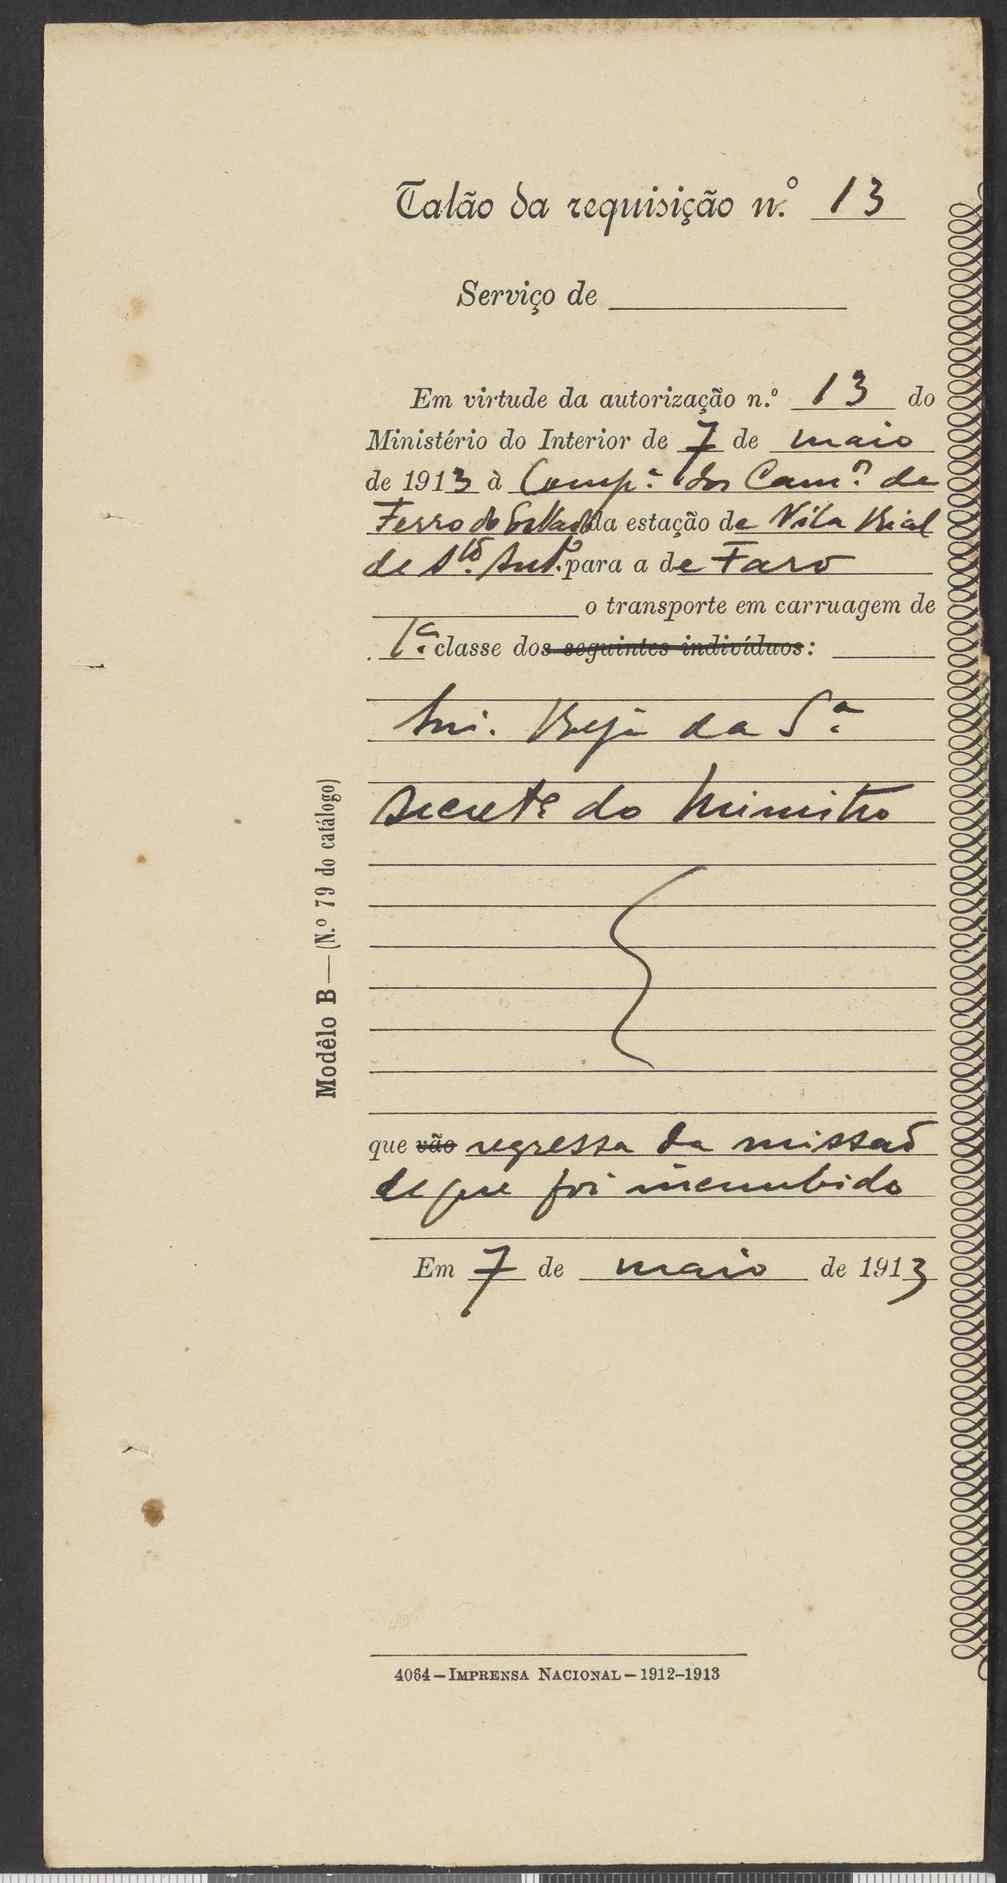 Talão da requisição n.º 13
Serviço de
Em virtude da autorização n.º 13 do
Ministério do Interior de 7 de maio
de 1913 à Comp.ª dos Cam.ºs de
Ferro do Estado da estação de Vila Rial
de S.to Ant.º para a de Faro
o transporte em carruagem de
1.ª classe dos seguintes indivíduos:
da S.ª
secret.º do Ministro
que vão regressa da missaõ
de que foi incumbido
Em 7 de maio de 1913
Modêlo B — (N.º 79 do catálogo)
4064 – Imprensa Nacional – 1912–1913